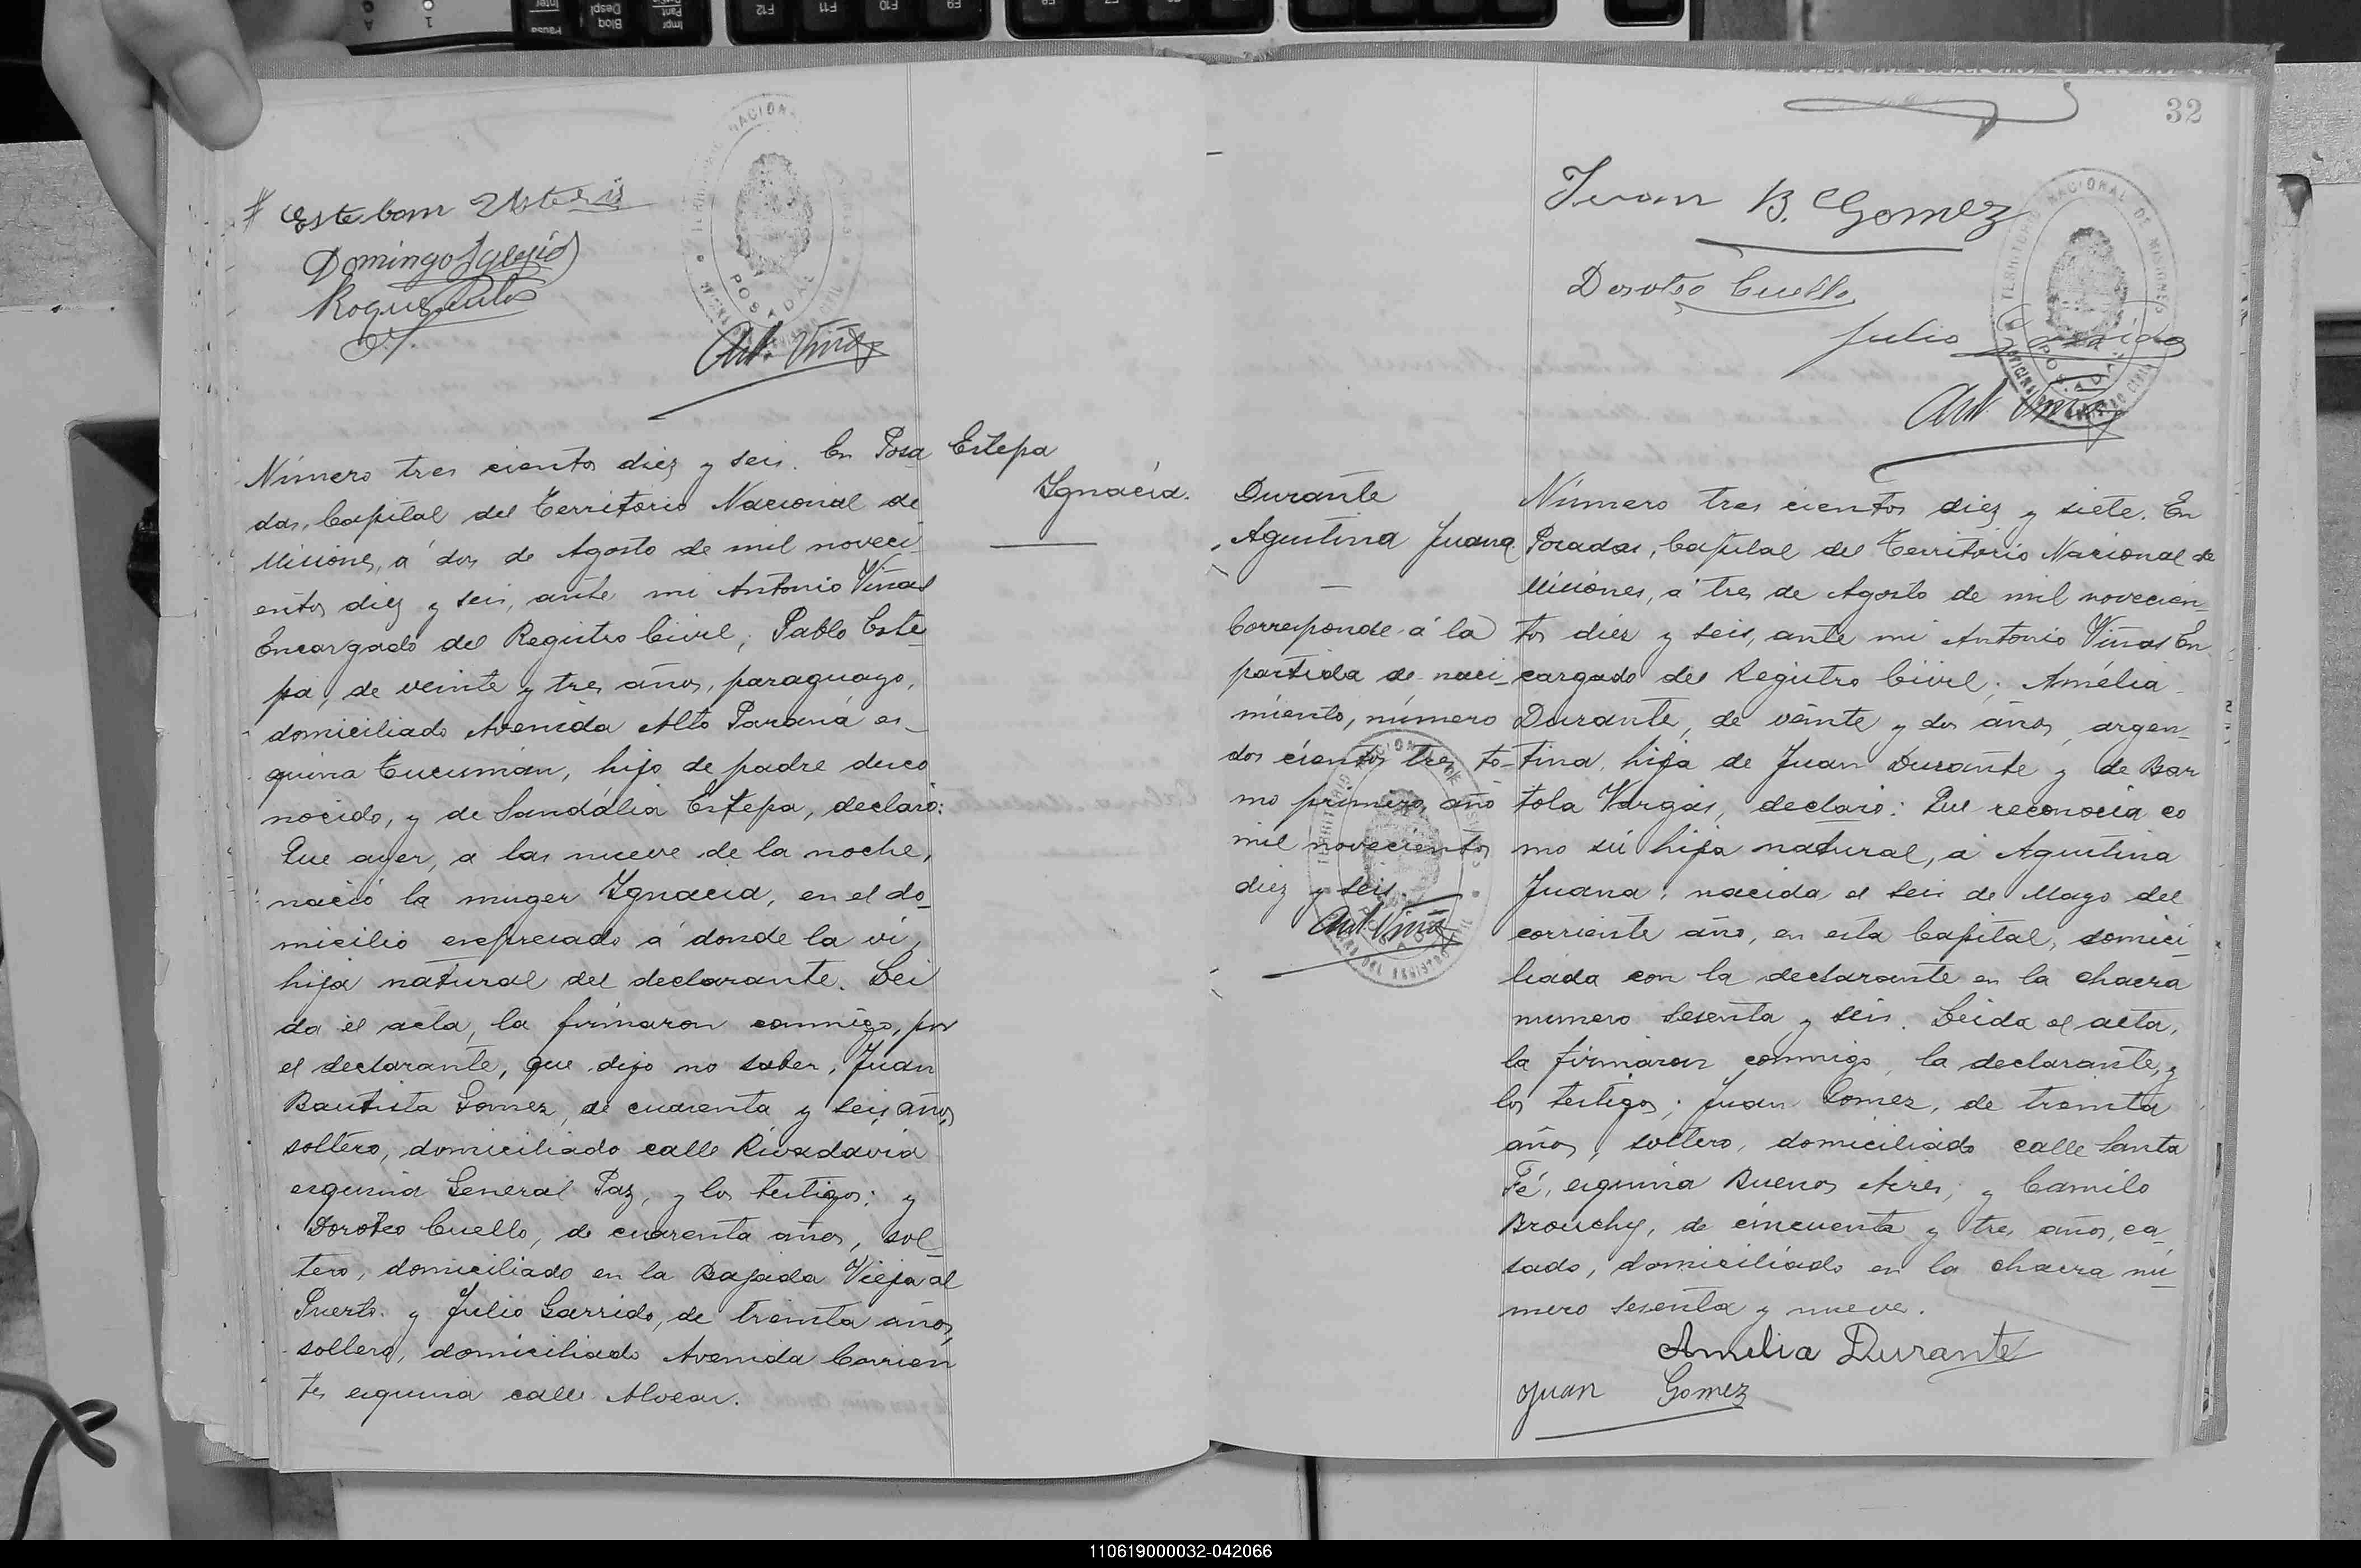 Esteban
Domingo Iglesias
Roque
TERRITORIO NACIONAL DE MISIONES
POSADAS
OFICINA DEL REGISTRO CIVIL
Ant. Viñas
Número tres cientos diez y seis. En Posa
das, Capital del Territorio Nacional de
Misiones, á dos de Agosto de mil noveci_
entos diez y seis, ante mi Antonio Viñas
Encargado del Registro Civil; Pablo Este_
pa, de veinte y tres años, paraguayo,
domiciliado Avenida Alto Paraná es_
quina Tucumán, hijo de padre desco
nocido, y de Sandália Estepa, declaró:
Que ayer, a las nueve de la noche,
nació la muger Ignacia, en el do_
micilio expresado á donde la vi,
hija natural del declarante. Lei
da el acta, la firmaron conmigo, por
el declarante, que dijo no saber, Juan
Bautista Gomez, de cuarenta y seis años,
soltero, domiciliado calle Rivadavia
esquina General Paz, y los testigos: y
Doroteo Cuello, de cuarenta años, sol_
tero, domiciliado en la Bajada Vieja al
Puerto. y Julio Garrido, de treinta años,
soltero, domiciliado Avenida Corrien
tes esquina calle Alvear.
Estepa
Ignacia.
32
Juan B. Gomez
Doroteo Cuello
Julio Garrido
TERRITORIO NACIONAL DE MISIONES
POSADAS
OFICINA DEL REGISTRO CIVIL
Ant. Viñas
Durante
Agustina Juana.
Corresponde á la
partida de naci_
miento, número
dos cientos tres to_
mo primero, año
mil novecientos
diez y seis.
Ant. Viñas
Número tres cientos diez y siete. En
Posadas, Capital del Territorio Nacional de
Misiones, á tres de Agosto de mil novecien_
tos diez y seis, ante mi Antonio Viñas En
cargado del Registro Civil; Amélia
Durante, de veinte y dos años, argen_
tina, hija de Juan Durante y de Bar
tola Vargas, declaró: Que reconocia co
mo su hija natural, á Agustina
Juana; nacida el seis de Mayo del
corriente año, en esta Capital, domici
liada con la declarante en la chacra
numero sesenta y seis. Leida el acta,
la firmaron conmigo, la declarante, y
los testigos; Juan Gomez, de treinta
años, soltero, domiciliado calle Santa
Fé, esquina Buenos Aires, y Camilo
Brouchy, de cincuenta y tres años, ca_
sado, domiciliado en la chacra nú_
mero sesenta y nueve.
Amelia Durante
Juan Gomez
110619000032-042066